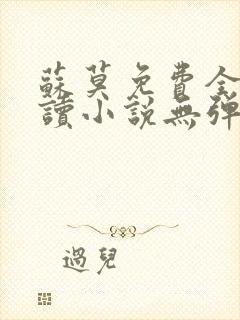 蘇莫免費全
讀小說無彈
過兒